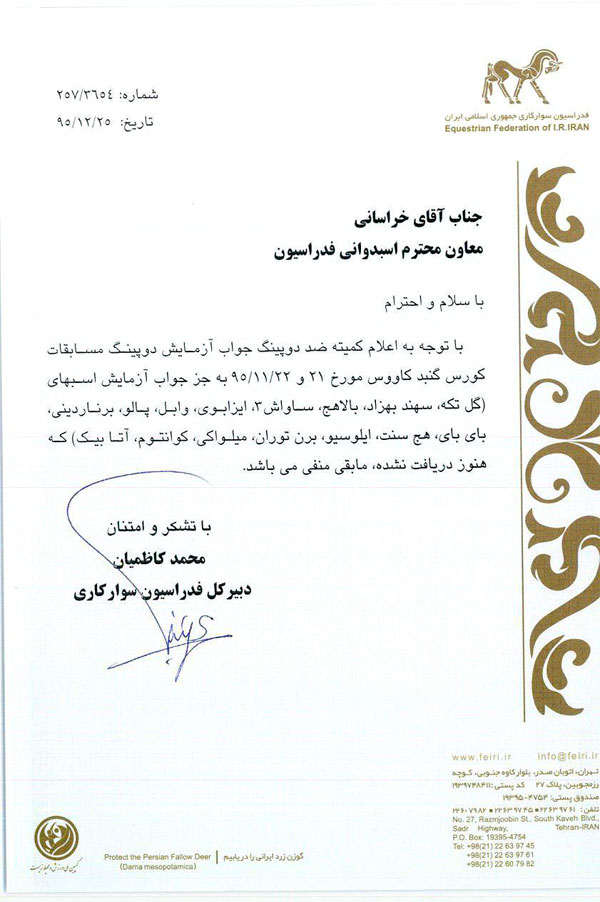 فدراسیون سوارکاری جمهوری اسلامی ایران
Equestrian Federation of I.R.IRAN
شماره: ۲۵۷/۳۶۵۴
تاریخ: ۹۵/۱۲/۲۵
جناب آقای خراسانی
معاون محترم اسبدوانی فدراسیون
با سلام و احترام
با توجه به اعلام کمیته ضد دوپینگ جواب آزمایش دوپینگ مسابقات
کورس گنبد کاووس مورخ ۲۱ و ۹۵/۱۱/۲۲ به جز جواب آزمایش اسبهای
(گل تکه، سهند بهزاد، بالاهج، ساواش۳، ایزابوی، وابل، پالو، برناردینی،
بای بای، هج سنت، ایلوسیو، برن توران، میلواکی، کوانتوم، آتا بیک) که
هنوز دریافت نشده، مابقی منفی می باشد.
با تشکر و امتنان
محمد کاظمیان
دبیرکل فدراسیون سوارکاری
www.feiri.ir info@feiri.ir
تهران، اتوبان صدر، بلوار کاوه جنوبی، کوچه
رزمجویین، پلاک ۲۷ کد پستی: ۱۹۳۹۷۴۸۴۱۱
صندوق پستی: ۴۷۵۴-۱۹۳۹۵
تلفن: ۲۲۶۳۹۷۶۱ ۲۲۶۳۹۷۴۵ ۲۲۶۰۷۹۸۲
No. 27, Razmjoobin St., South Kaveh Blvd.,
Sadr Highway, Tehran-IRAN
P.O. Box: 19395-4754
Tel: +98(21) 22 63 97 45
+98(21) 22 63 97 61
+98(21) 22 60 79 82
گوزن زرد ایرانی را دریابیم
Protect the Persian Fallow Deer
(Dama mesopotamica)